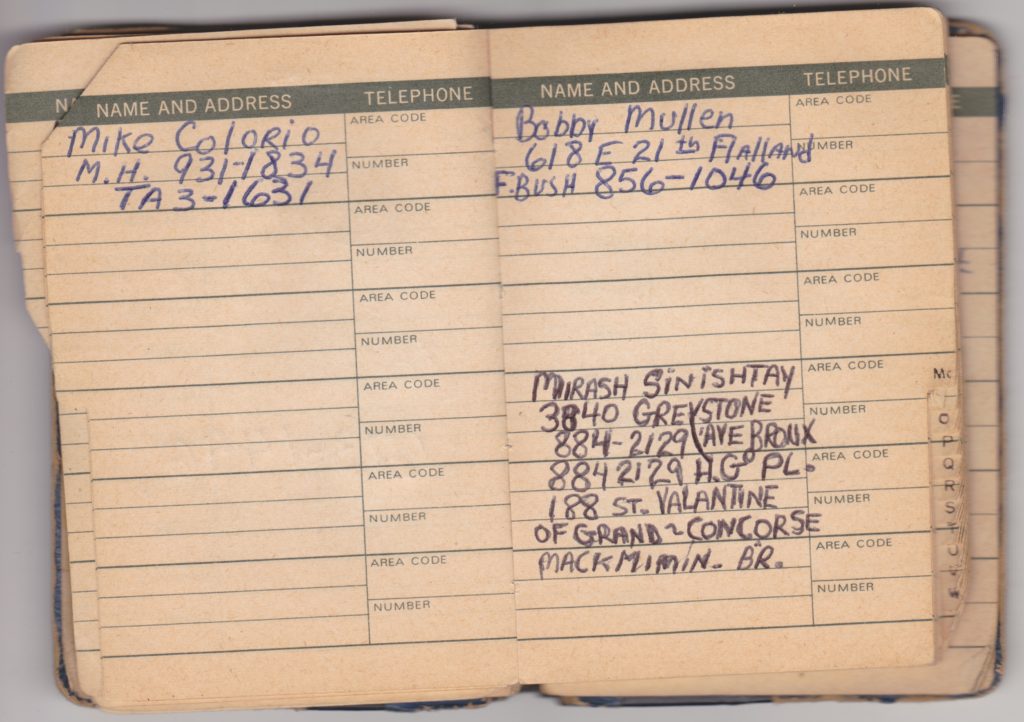 NAME AND ADDRESS
TELEPHONE
AREA CODE
NUMBER
Mike Colorio
M.H. 931-1834
TA 3-1631
AREA CODE
NUMBER
AREA CODE
NUMBER
AREA CODE
NUMBER
AREA CODE
NUMBER
AREA CODE
NUMBER
NAME AND ADDRESS
TELEPHONE
AREA CODE
NUMBER
Bobby Mullen
618 E 21 th Flalland
F.BUSH 856-1046
AREA CODE
NUMBER
AREA CODE
NUMBER
AREA CODE
NUMBER
AREA CODE
NUMBER
AREA CODE
NUMBER
MIRASH SINISHTAY
3840 GREYSTONE
884-2129 AVE BRONX
884 2129 H.G PL.
188 ST. VALANTINE
OF GRAND ~ CONCORSE
MACKMIMIN. BR.
Mc
O
P
Q
R
S